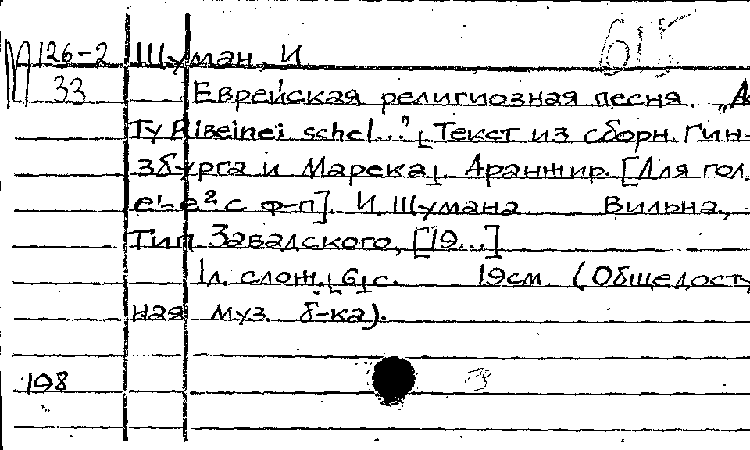 615
126-2 Шуман, И
33 Еврейская религиозная песня. „А
Ту Ribeinei schel..." [Текст из сборн. Гин-
збурга и Марека]. Аранжир. [Для гол.
e¹-e² с ф-п]. И. Шумана Вильна,
Тип. Завадского, [19...]
1л. слож. [6] с. 19см (Общедоступ
ная муз. б-ка).
198